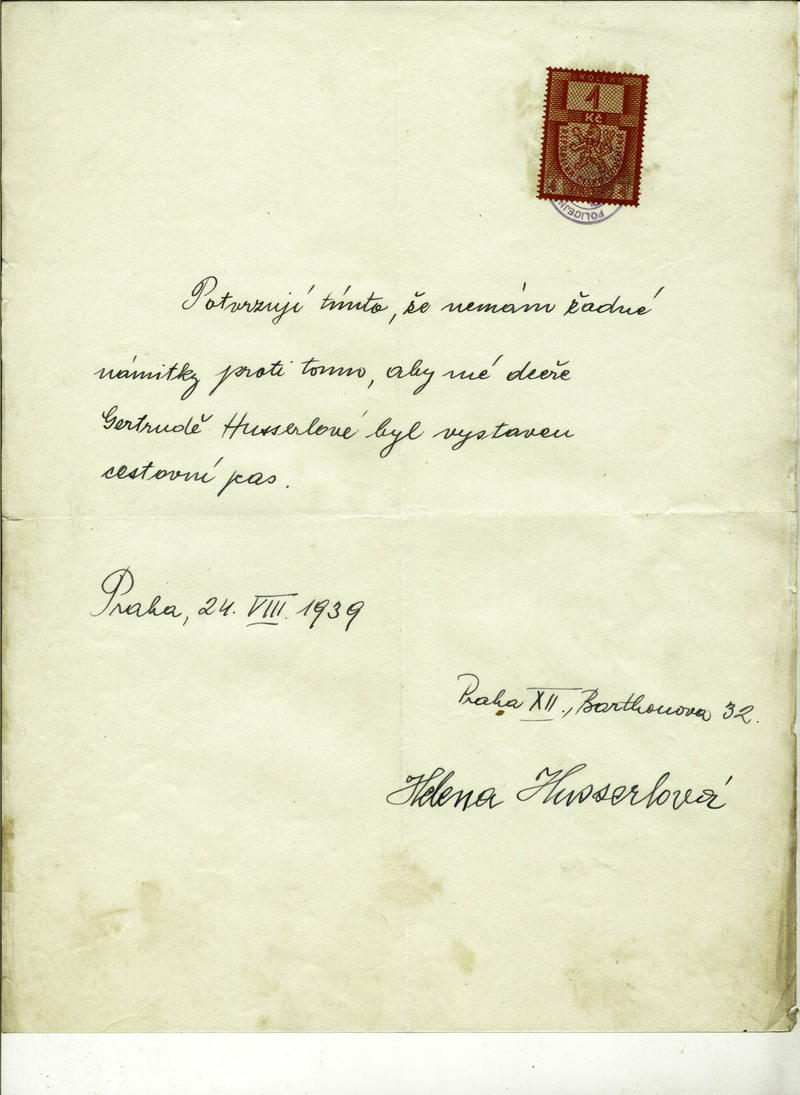 KOLEK
1
Kč
POLICEJN
Potvrzuji tímto, že nemám žádné
námitky proti tomu, aby mé dceře
Gertrudě Husserlové byl vystaven
cestovní pas.
Praha, 24. VIII. 1939
Praha XII., Barthonova 32.
Helena Husserlová